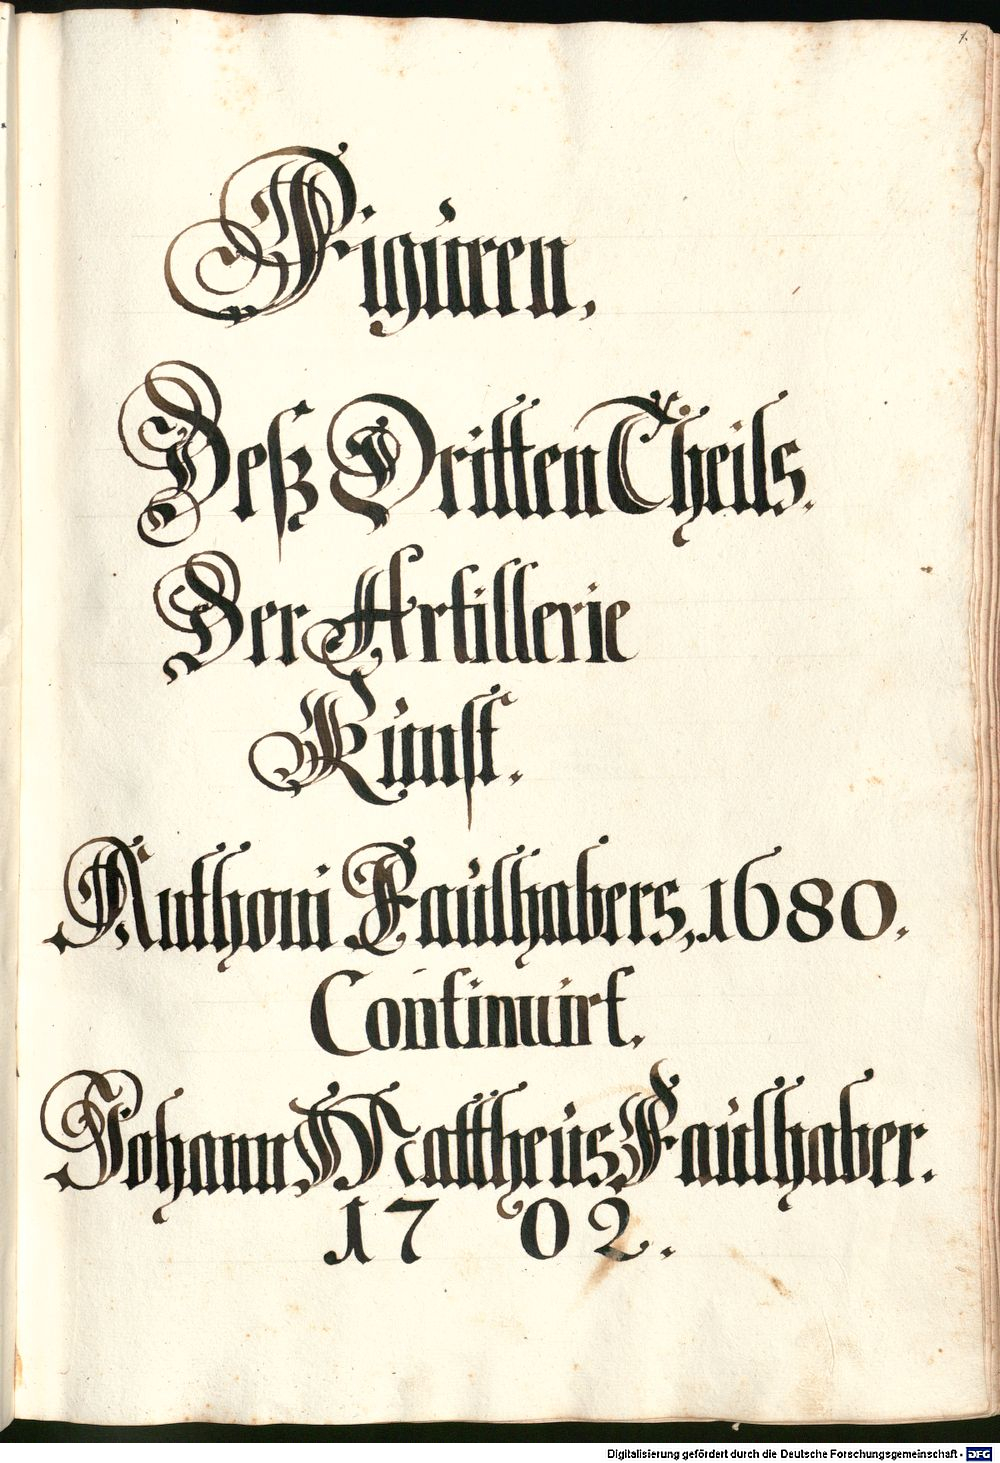 1.
Figuren,
Deß Dritten Theils.
Der Artillerie
Kunst.
Anthoni Faulhabers, 1680.
Continuirt.
Johann Mattheus Faulhaber.
1702.
Digitalisierung gefördert durch die Deutsche Forschungsgemeinschaft - DFG